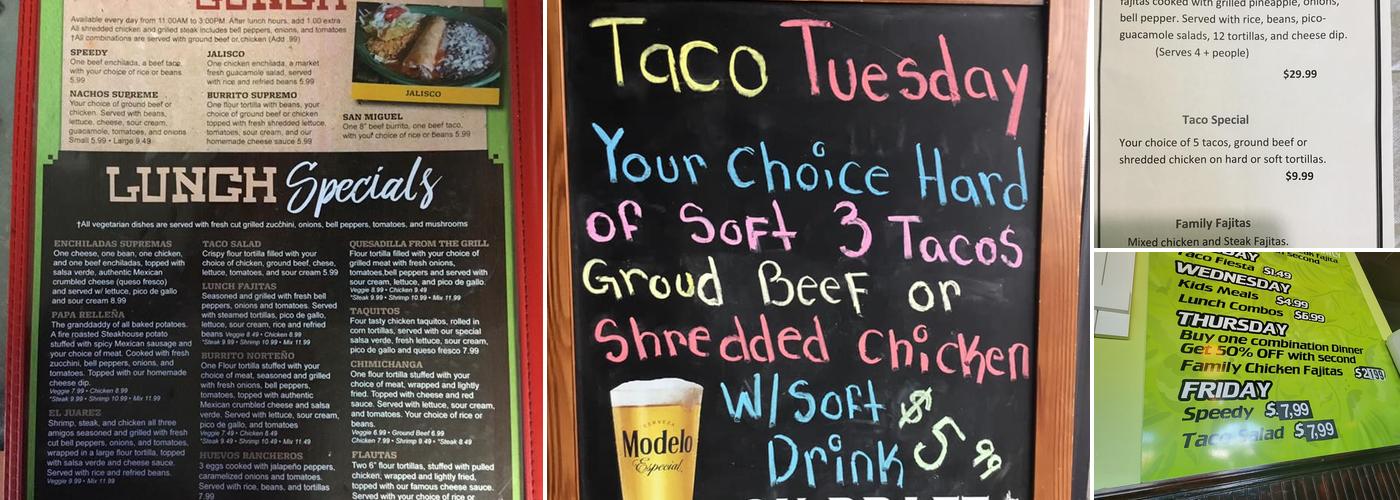 LUNCH
Available every day from 11:00AM to 3:00PM. After lunch hours, add 1.00 extra
All shredded chicken and grilled steak includes bell peppers, onions, and tomatoes
†All combinations are served with ground beef or chicken (Add .99)
SPEEDY
One beef enchilada, a beef taco,
with your choice of rice or beans
5.99
NACHOS SUPREME
Your choice of ground beef or
chicken. Served with beans,
lettuce, cheese, sour cream,
guacamole, tomatoes, and onions
Small 5.99 • Large 9.49
JALISCO
One chicken enchilada, a market
fresh guacamole salad, served
with rice and refried beans 5.99
BURRITO SUPREMO
One flour tortilla with beans, your
choice of ground beef or chicken
topped with fresh shredded lettuce,
tomatoes, sour cream, and our
homemade cheese sauce 5.99
JALISCO
SAN MIGUEL
One 8" beef burrito, one beef taco,
with your choice of rice or beans 5.99
LUNCH Specials
†All vegetarian dishes are served with fresh cut grilled zucchini, onions, bell peppers, tomatoes, and mushrooms
ENCHILADAS SUPREMAS
One cheese, one bean, one chicken,
and one beef enchiladas, topped with
salsa verde, authentic Mexican
crumbled cheese (queso fresco)
and served w/ lettuce, pico de gallo
and sour cream 8.99
PAPA RELLEÑA
The granddaddy of all baked potatoes.
A fire roasted Steakhouse potato
stuffed with spicy Mexican sausage and
your choice of meat. Cooked with fresh
zucchini, bell peppers, onions, and
tomatoes. Topped with our homemade
cheese dip.
Veggie 7.99 • Chicken 8.99
*Steak 9.99 • Shrimp 10.99 • Mix 11.99
EL JUAREZ
Shrimp, steak, and chicken all three
amigos seasoned and grilled with fresh
cut bell peppers, onions, and tomatoes,
wrapped in a large flour tortilla, topped
with salsa verde and cheese sauce.
Served with rice and refried beans.
Veggie 9.99 • Mix 11.99
TACO SALAD
Crispy flour tortilla filled with your
choice of chicken, ground beef, cheese,
lettuce, tomatoes, and sour cream 5.99
LUNCH FAJITAS
Seasoned and grilled with fresh bell
peppers, onions and tomatoes. Served
with steamed tortillas, pico de gallo,
lettuce, sour cream, rice and refried
beans Veggie 8.49 • Chicken 8.99
*Steak 9.99 • Shrimp 10.99 • Mix 11.99
BURRITO NORTEÑO
One Flour tortilla stuffed with your
choice of meat, seasoned and grilled
with fresh onions, bell peppers,
tomatoes, topped with authentic
Mexican crumbled cheese and salsa
verde. Served with lettuce, sour cream,
pico de gallo and tomatoes
Veggie 7.49 • Chicken 8.49
*Steak 9.49 • Shrimp 10.49 • Mix 11.49
HUEVOS RANCHEROS
3 eggs cooked with jalapeño peppers,
caramelized onions and tomatoes.
Served with rice, beans, and tortillas
7.99
QUESADILLA FROM THE GRILL
Flour tortilla filled with your choice of
grilled meat with fresh onions,
tomatoes,bell peppers and served with
sour cream, lettuce, and pico de gallo.
Veggie 8.99 • Chicken 9.49
*Steak 9.99 • Shrimp 10.99 • Mix 11.99
TAQUITOS
Four tasty chicken taquitos, rolled in
corn tortillas, served with our special
salsa verde, fresh lettuce, sour cream,
pico de gallo and queso fresco 7.99
CHIMICHANGA
One flour tortilla stuffed with your
choice of meat, wrapped and lightly
fried. Topped with cheese and red
sauce. Served with lettuce, sour cream,
and tomatoes. Your choice of rice or
beans.
Veggie 6.99 • Ground Beef 6.99
Chicken 7.99 • Shrimp 9.49 • *Steak 8.49
FLAUTAS
Two 6" flour tortillas, stuffed with pulled
chicken, wrapped and lightly fried,
topped with our famous cheese sauce.
Served with your choice of rice or
Taco Tuesday
Your Choice Hard
of Soft 3 Tacos
Groud Beef or
Shredded Chicken
W/Soft
Drink $5.99
CERVEZA
Modelo
Especial
fajitas cooked with grilled pineapple, onions,
bell pepper. Served with rice, beans, pico-
guacamole salads, 12 tortillas, and cheese dip.
(Serves 4 + people)
$29.99
Taco Special
Your choice of 5 tacos, ground beef or
shredded chicken on hard or soft tortillas.
$9.99
Family Fajitas
Mixed chicken and Steak Fajitas.
Taco Fiesta $1.49
WEDNESDAY
Kids Meals $4.99
Lunch Combos $6.99
THURSDAY
Buy one combination Dinner
Get 50% OFF with second
Family Chicken Fajitas $21.99
FRIDAY
Speedy $.7,99
Taco Salad $7,99